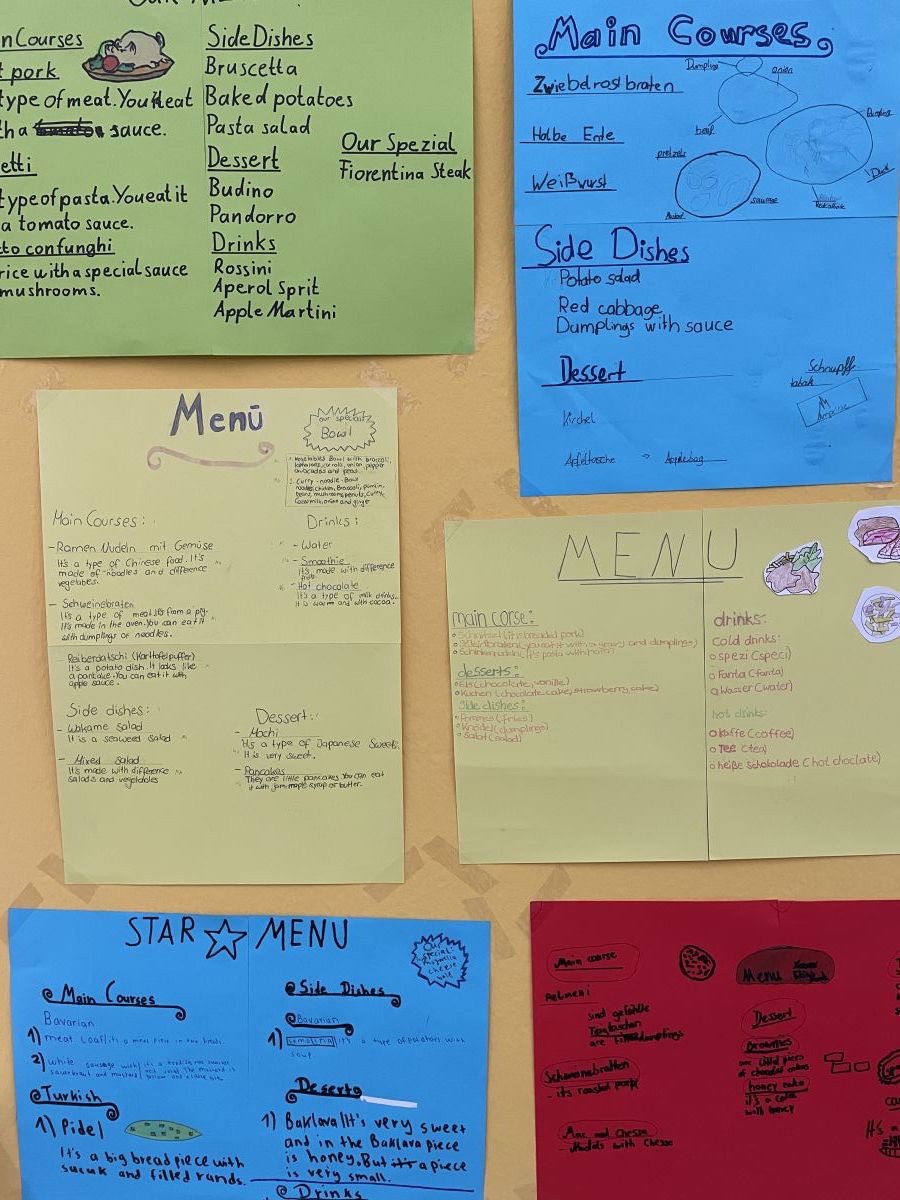 nCourses
t pork
type of meat. You eat
th a sauce.
etti
type of pasta. You eat it
a tomato sauce.
tto confunghi
rice with a special sauce
mushrooms.
Side Dishes
Bruscetta
Baked potatoes
Pasta salad
Dessert
Budino
Pandorro
Drinks
Rossini
Aperol Sprit
Apple Martini
Our Spezial
Fiorentina Steak
Main Courses
Zwiebelrostbraten
Dumpling
onion
beef
Halbe Ente
Weißwurst
pretzels
sausage
Side Dishes
Potato salad
Red cabbage
Dumplings with sauce
Dessert
Kirchel
Apfeltasche
Applebag
Schnupff
tabak
Menü
our special:
Bowl
1. Vegetables Bowl with broccoli,
carrots, onion, pepper
avocados and peas.
2. Curry-noodle-Bowl
noodles, chicken, Broccoli, pumkin,
beans, mushrooms, penuts, Curry,
Cocosmilk, onion and ginger
Main Courses:
- Ramen Nudeln mit Gemüse
It's a type of Chinese food. It's
made of noodles and difference
vegetables.
- Schweinebraten
It's a type of meat. It's from a pig.
It's made in the oven. You can eat it
with dumplings or noodles.
Reiberdatschi (Kartoffelpuffer)
It's a potato dish. It looks like
a pancake. You can eat it with
apple sauce.
Side dishes:
- Wakame Salad
It is a seaweed salad
- Mixed Salad
It's made with difference
salads and vegetables
Drinks:
- Water
- Smoothie
It's made with difference
fruits.
- Hot chocolate
It's a type of milk drinks.
It is warm and with cocoa.
Dessert:
- Mochi
It's a type of Japanese Sweets.
It is very sweet.
- Pancakes
They are little pancakes. You can eat
it with jam, maple syrup or butter.
MENU
main corse:
Schnitzel (it is breaded pork)
(you eat it with gravy and dumplings)
desserts:
Eis (chocolate, vanille)
Kuchen (chocolate cake, strawberry cake)
side dishes:
Pommes (fries)
Knödel (dumplings)
Salat (salad)
drinks:
cold drinks:
spezi (speci)
Fanta (fanta)
Wasser (water)
hot drinks:
Kaffe (coffee)
Tee (tea)
heiße Schokolade (hot choclate)
STAR MENU
Our
special:
cheese
Main Courses
Bavarian
1) meat loaf: it's a meat piece in the bread.
2) white sausage with
sauerkraut and mustard
Turkish
1) Pide!
It's a big bread piece with
sucuk and filled rands.
Side Dishes
Bavarian
1) it's a type of potatoes with
soup.
Deserts
1) Baklava! It's very sweet
and in the Baklava piece
is honey. But a piece
is very small.
Drinks
Main course
Pelmeni
sind gefüllte
Teigtaschen
are filled dumplings
Schweinebratten
- it's roasted pork
Mac and Cheese
- Nudels with Cheese
Menu
Dessert
Brownies
are little pieces
of chocolat cakes
honey cake
it's a cake
with honey
It's a